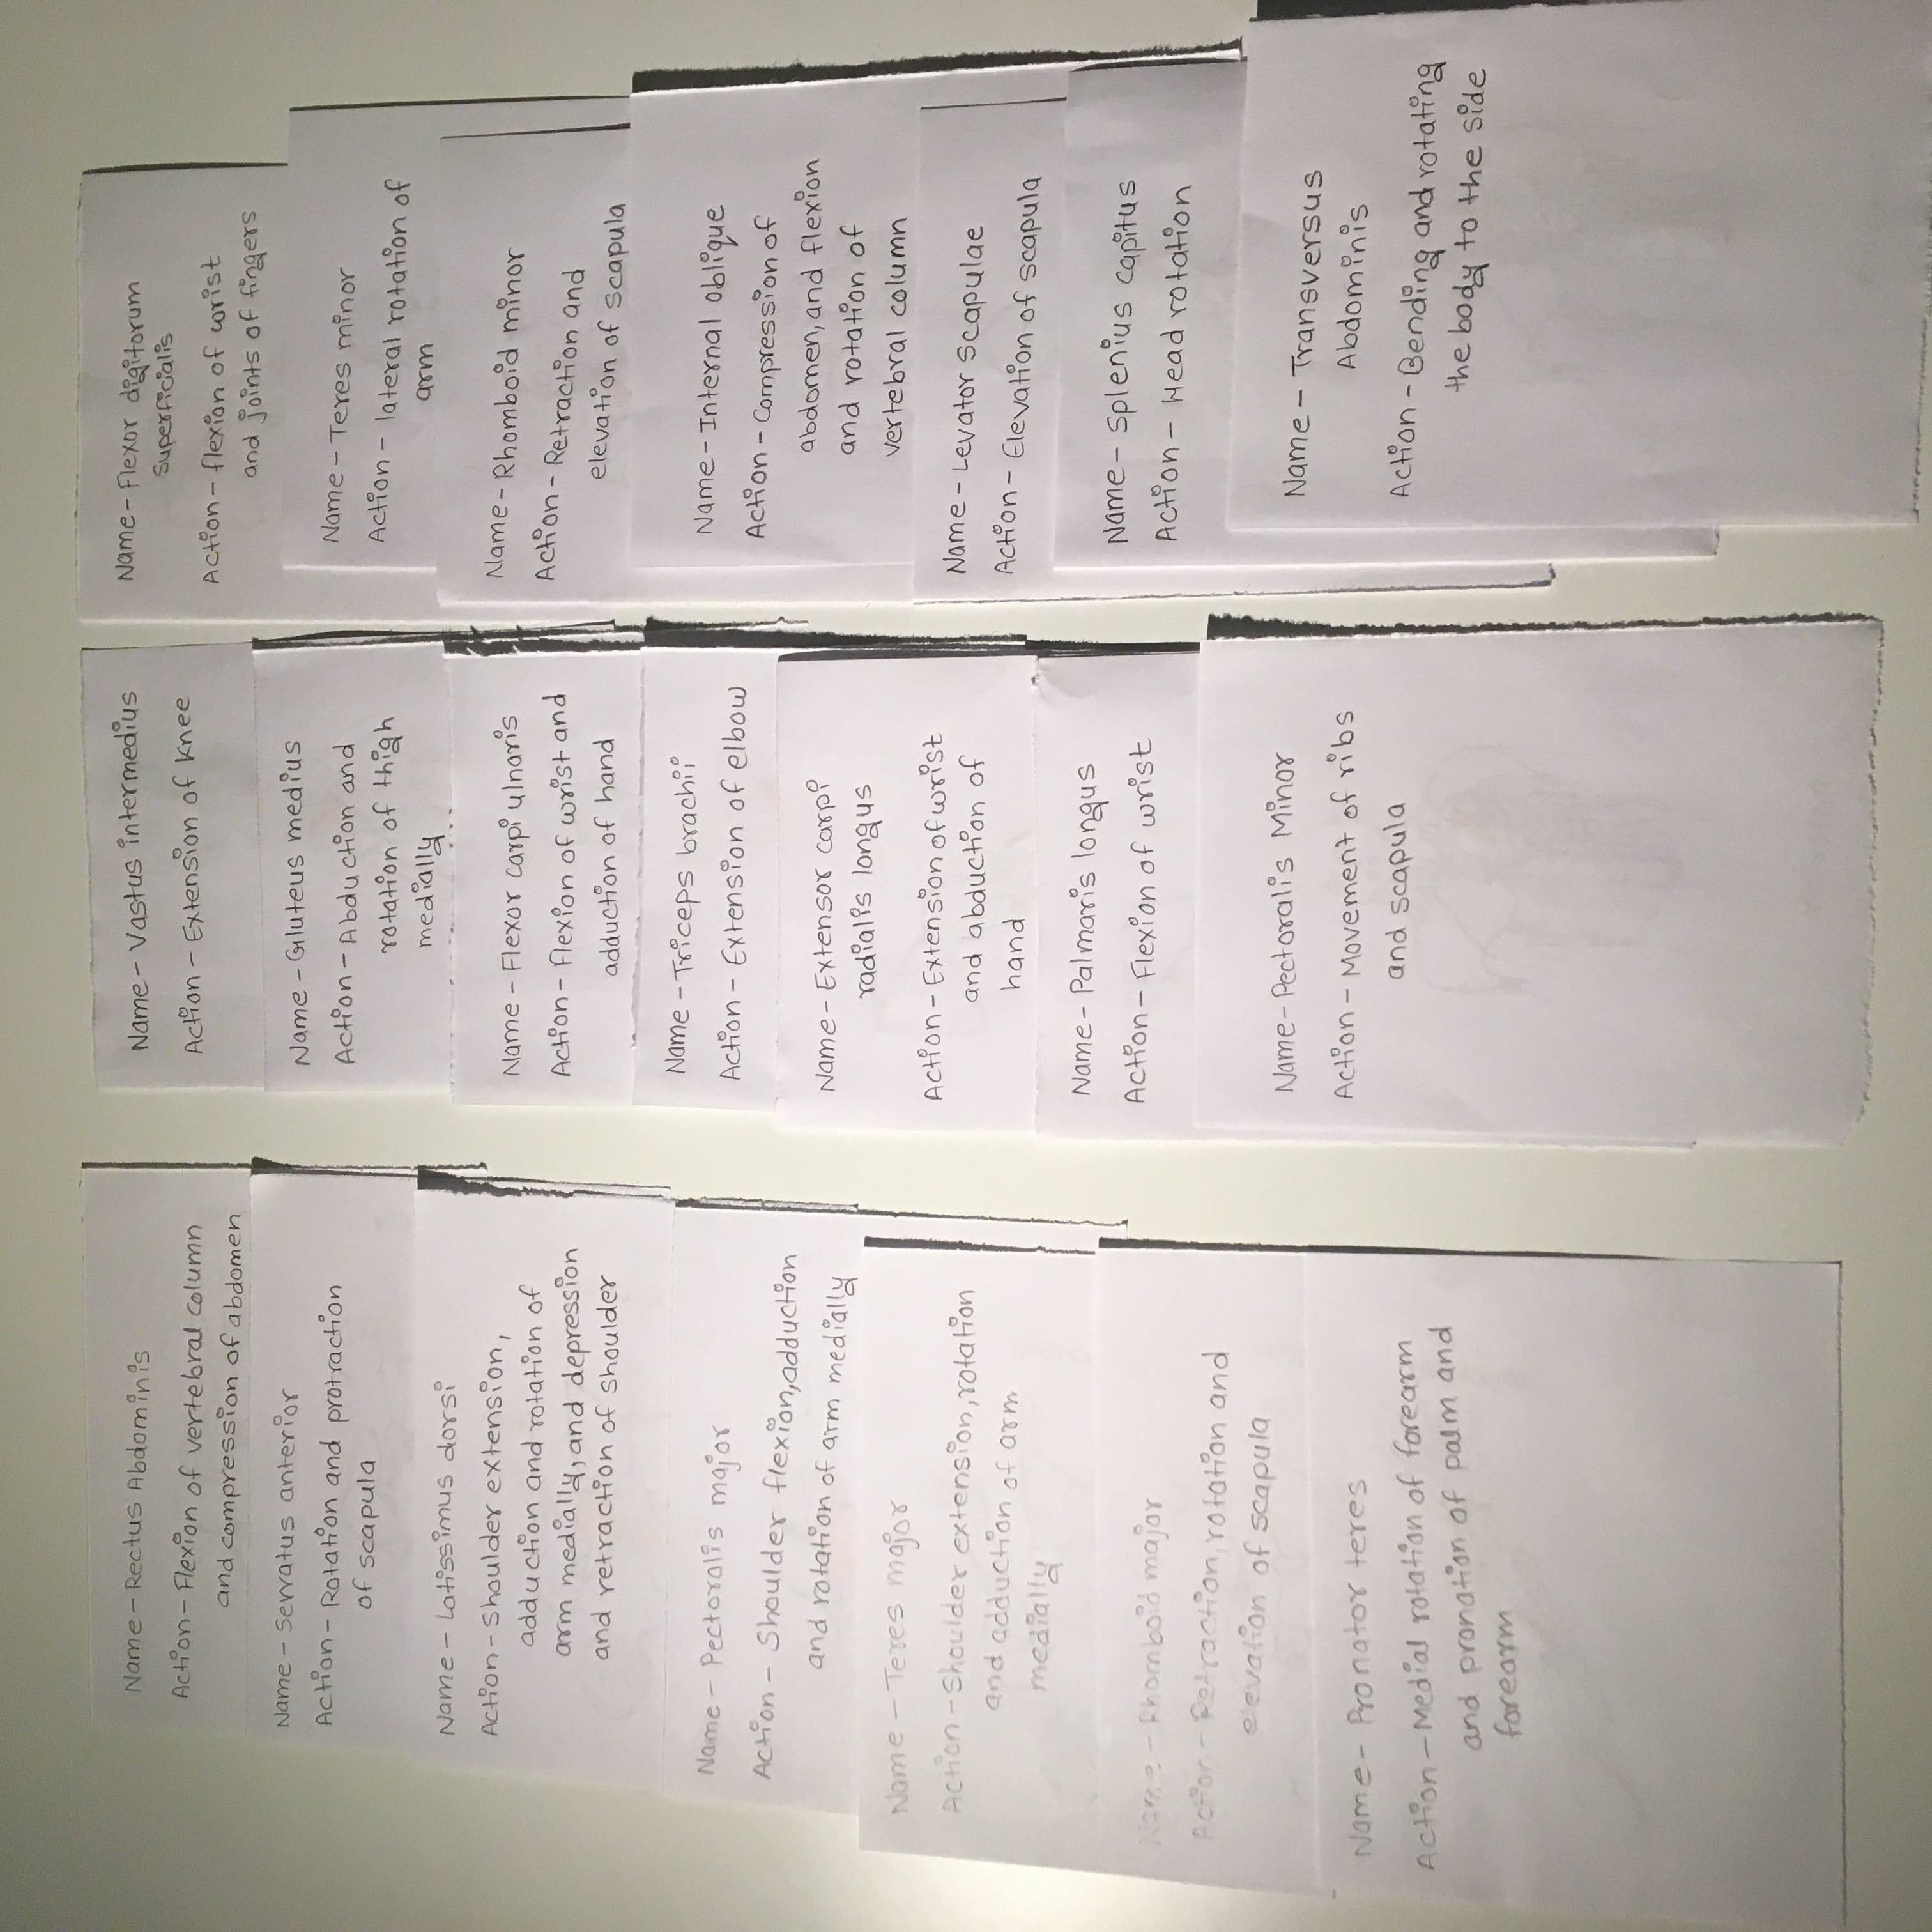 Name - Rectus Abdominis
Action - Flexion of vertebral column
and compression of abdomen
Name - Serratus anterior
Action - Rotation and protraction
of scapula
Name - Latissimus dorsi
Action - Shoulder extension,
adduction and rotation of
arm medially, and depression
and retraction of shoulder
Name - Pectoralis major
Action - Shoulder flexion, adduction
and rotation of arm medially
Name - Teres major
Action - Shoulder extension, rotation
and adduction of arm
medially
Name - Rhomboid major
Action - Retraction, rotation and
elevation of scapula
Name - Pronator teres
Action - Medial rotation of forearm
and pronation of palm and
forearm
Name - Vastus intermedius
Action - Extension of knee
Name - Gluteus medius
Action - Abduction and
rotation of thigh
medially
Name - Flexor carpi ulnaris
Action - Flexion of wrist and
adduction of hand
Name - Triceps brachii
Action - Extension of elbow
Name - Extensor carpi
radialis longus
Action - Extension of wrist
and abduction of
hand
Name - Palmaris longus
Action - Flexion of wrist
Name - Pectoralis Minor
Action - Movement of ribs
and scapula
Name - Flexor digitorum
Superficialis
Action - flexion of wrist
and joints of fingers
Name - Teres minor
Action - lateral rotation of
arm
Name - Rhomboid minor
Action - Retraction and
elevation of scapula
Name - Internal oblique
Action - Compression of
abdomen, and flexion
and rotation of
vertebral column
Name - Levator scapulae
Action - Elevation of scapula
Name - Splenius capitus
Action - Head rotation
Name - Transversus
Abdominis
Action - Bending and rotating
the body to the side